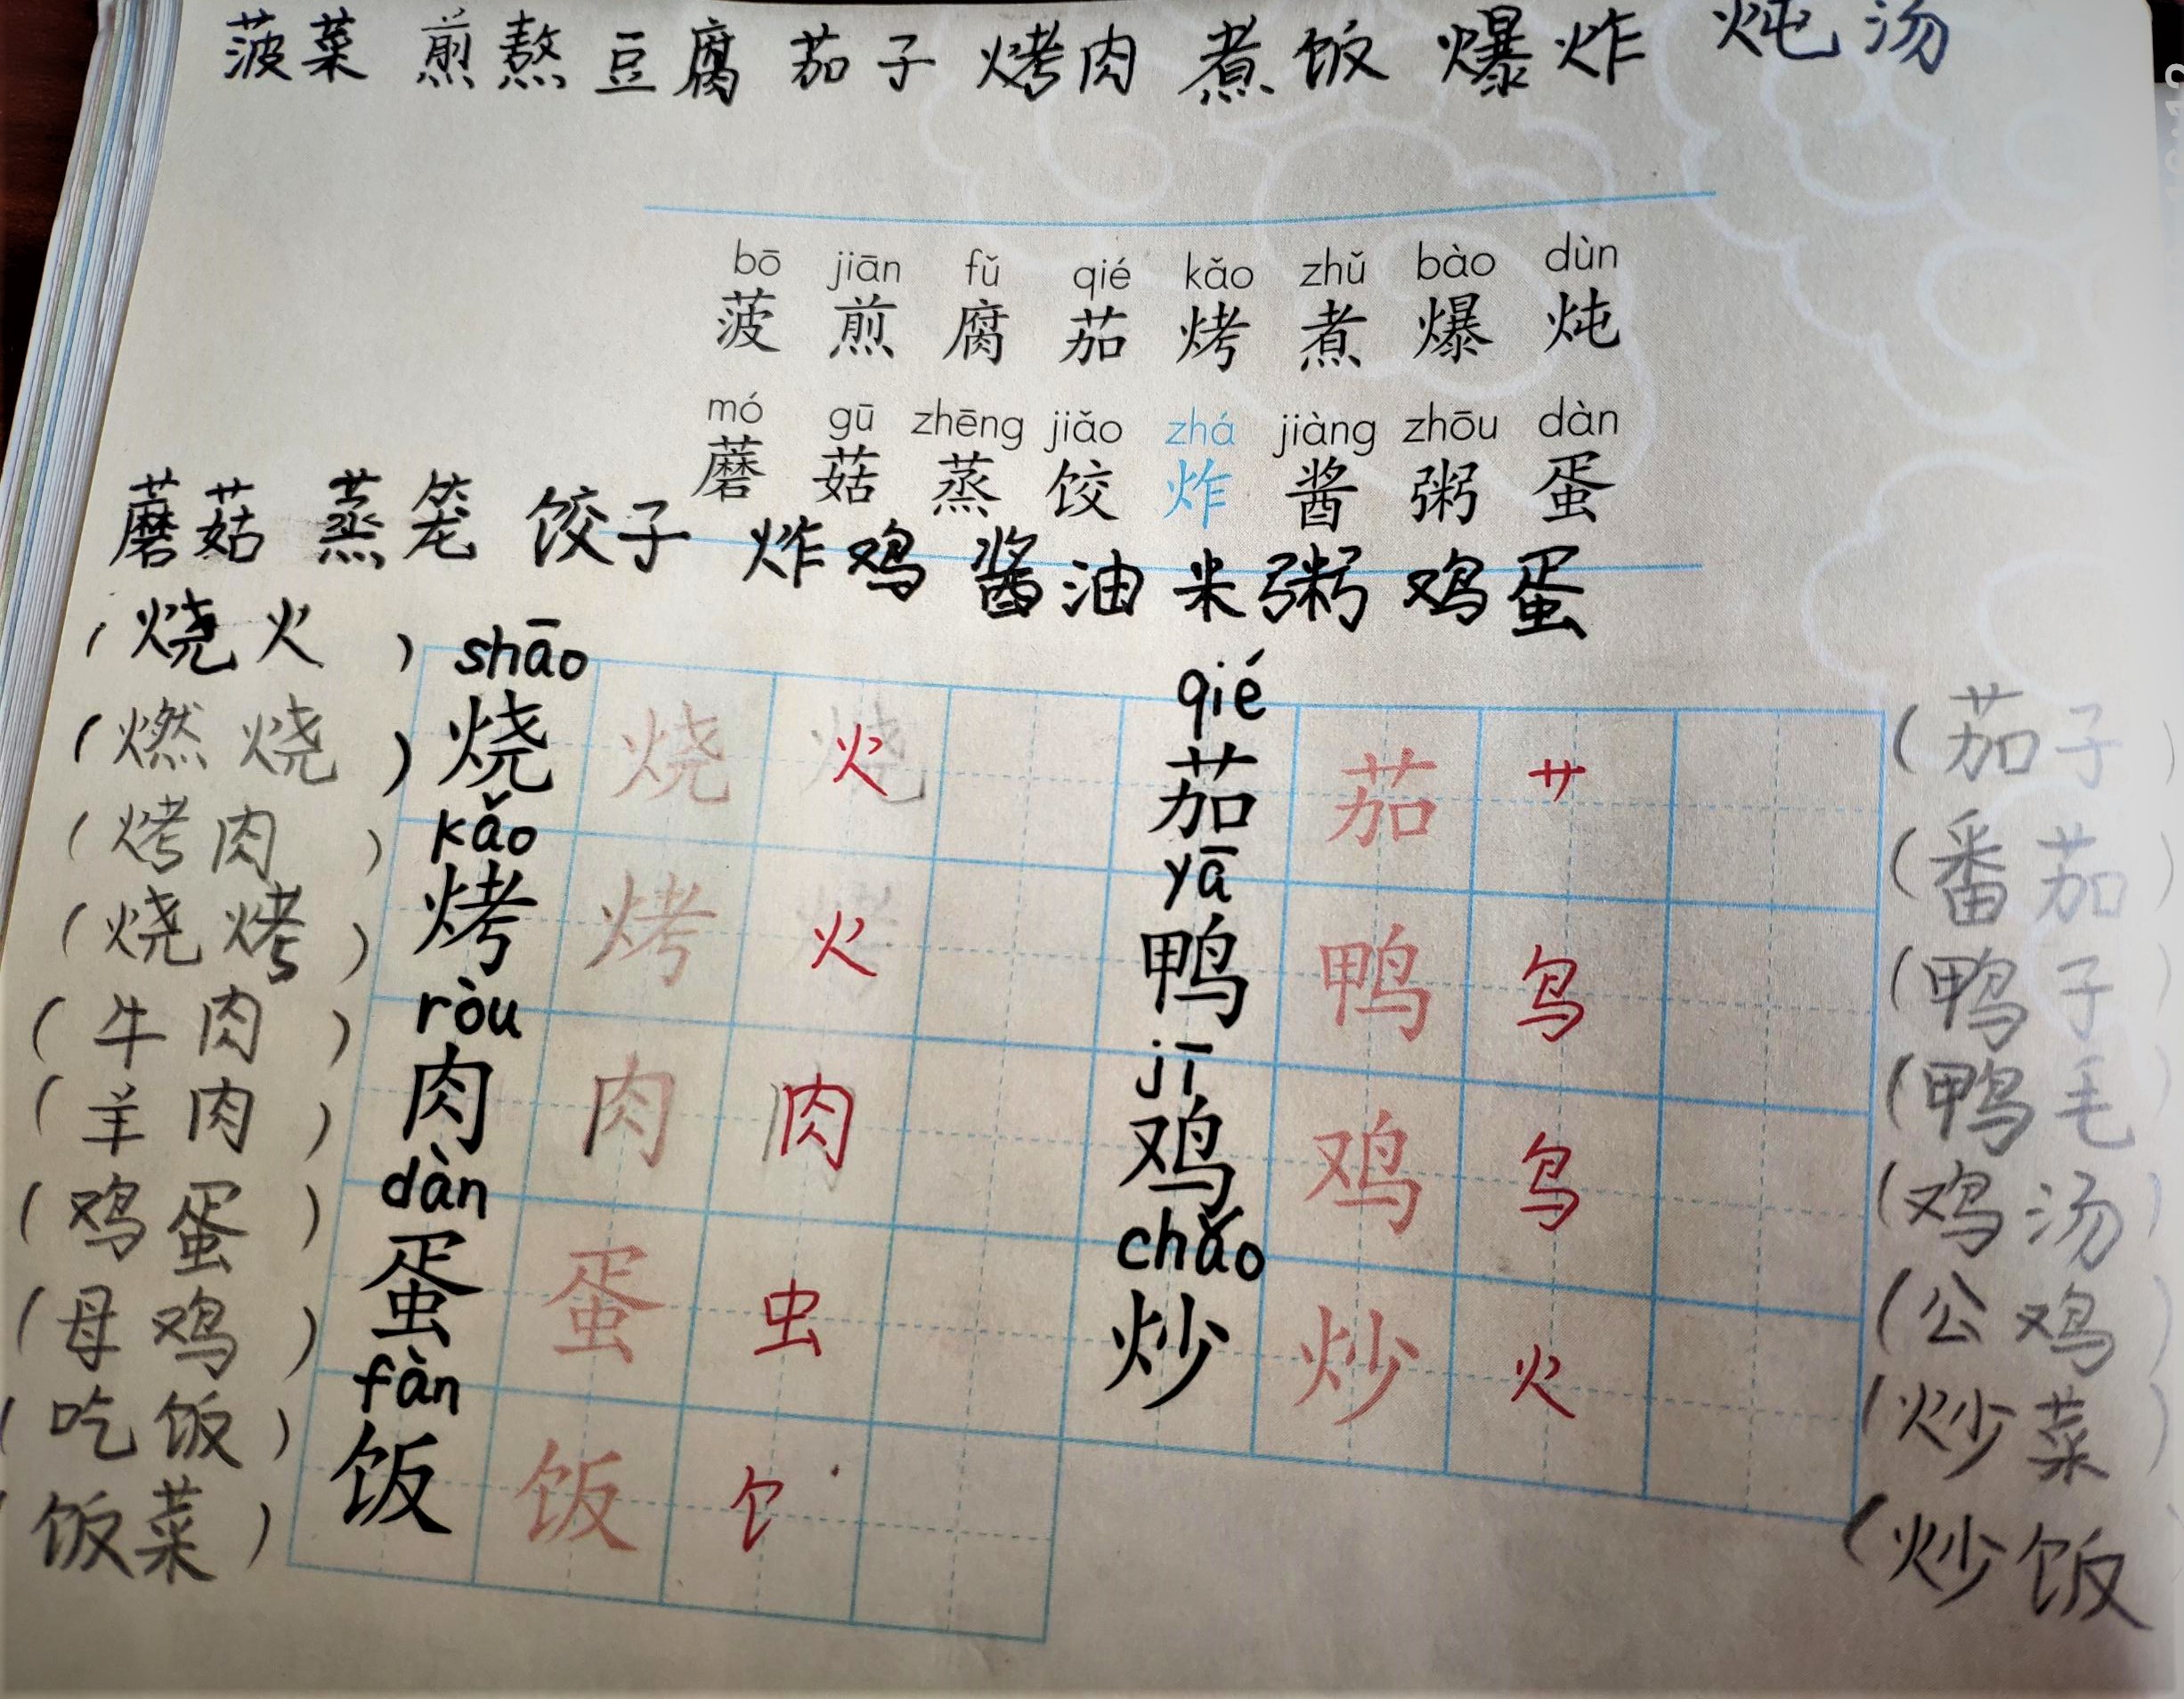 菠菜 煎熬 豆腐 茄子 烤肉 煮饭 爆炸 炖汤
bō jiān fǔ qié kǎo zhǔ bào dùn
菠 煎 腐 茄 烤 煮 爆 炖
mó gū zhēng jiǎo zhá jiàng zhōu dàn
蘑 菇 蒸 饺 炸 酱 粥 蛋
蘑菇 蒸笼 饺子 炸鸡 酱油 米粥 鸡蛋
(烧火) shāo qié
(燃烧) 烧 烧 烧 火 茄 茄 艹 (茄子)
(烤肉) kǎo yā (番茄)
(烧烤) 烤 烤 烤 火 鸭 鸭 鸟 (鸭子)
(牛肉) ròu jī (鸭毛)
(羊肉) 肉 肉 肉 鸡 鸡 鸟 (鸡汤)
(鸡蛋) dàn chǎo (公鸡)
(母鸡) 蛋 蛋 虫 炒 炒 火 (炒菜)
(吃饭) fàn (炒饭
(饭菜) 饭 饭 饣